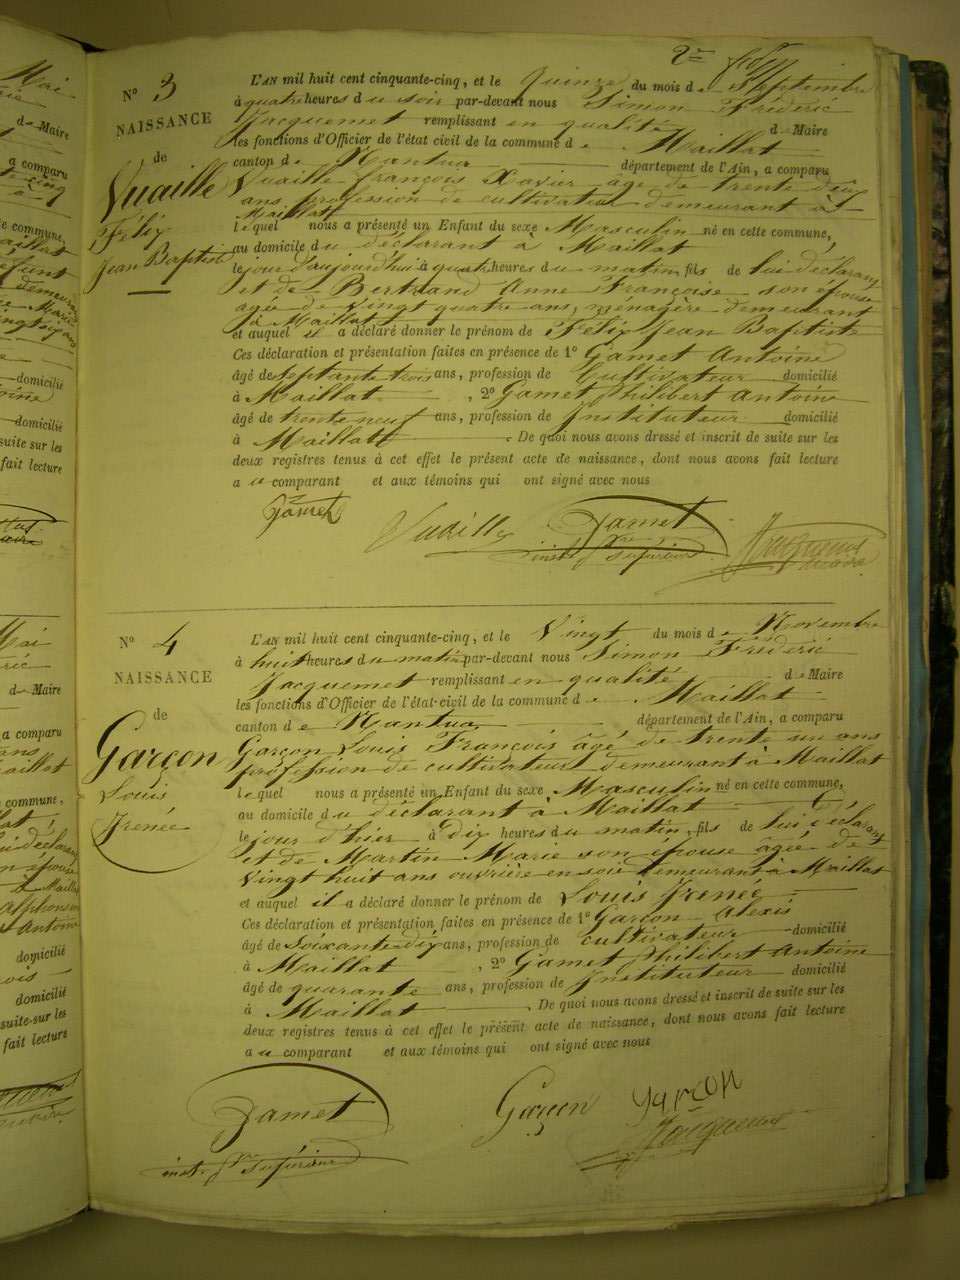 2me
N° 3
NAISSANCE
de
Vuaille
Félix
Jean Baptiste
L'AN mil huit cent cinquante-cinq, et le Quinze du mois de Septembre
à quatre heures du soir par-devant nous Simon Fréderic
Jacquemet remplissant en qualité de Maire
les fonctions d'Officier de l'état civil de la commune de Maillat
canton de Nantua département de l'Ain, a comparu
Vuaille françois Xavier âgé de trente deux
ans, profession de cultivateur demeurant à
Maillat
lequel nous a présenté un Enfant du sexe Masculin né en cette commune,
au domicile du déclarant à Maillat
le jour d'aujourd'hui à quatre heures du matin, fils de lui déclarant
et de Bertrand Anne Françoise son épouse
agée de vingt quatre ans, ménagère demeurant
à Maillat
et auquel il a déclaré donner le prénom de Félix Jean Baptiste
Ces déclaration et présentation faites en présence de 1° Gamet Antoine
âgé de septante trois ans, profession de Cultivateur domicilié
à Maillat , 2° Gamet Philibert Antoine
âgé de trente neuf ans, profession de Instituteur domicilié
à Maillat . De quoi nous avons dressé et inscrit de suite sur les
deux registres tenus à cet effet le présent acte de naissance, dont nous avons fait lecture
au comparant et aux témoins qui ont signé avec nous
Gamet
Vuaille
Gamet
inst. re supérieur
Jacquemet
maire
N° 4
NAISSANCE
de
Garçon
Louis
Irenée
L'AN mil huit cent cinquante-cinq, et le Vingt du mois de Novembre
à huit heures du matin par-devant nous Simon Fréderic
Jacquemet remplissant en qualité de Maire
les fonctions d'Officier de l'état-civil de la commune de Maillat
canton de Nantua, département de l'Ain, a comparu
Garçon Louis François âgé de trente un ans
profession de cultivateur demeurant à Maillat
lequel nous a présenté un Enfant du sexe Masculin né en cette commune,
au domicile du déclarant à Maillat
le jour d'hier à dix heures du matin, fils de lui déclarant
et de Martin Marie son épouse agée de
vingt huit ans ouvrière en soie demeurant à Maillat
et auquel il a déclaré donner le prénom de Louis Irenée
Ces déclaration et présentation faites en présence de 1° Garçon Alexis
âgé de soixante dix ans, profession de cultivateur domicilié
à Maillat , 2° Gamet Philibert Antoine
âgé de quarante ans, profession de Instituteur domicilié
à Maillat . De quoi nous avons dressé et inscrit de suite sur les
deux registres tenus à cet effet le présent acte de naissance, dont nous avons fait lecture
au comparant et aux témoins qui ont signé avec nous
Gamet
inst. re supérieur
Garçon
garcon
Jacquemet